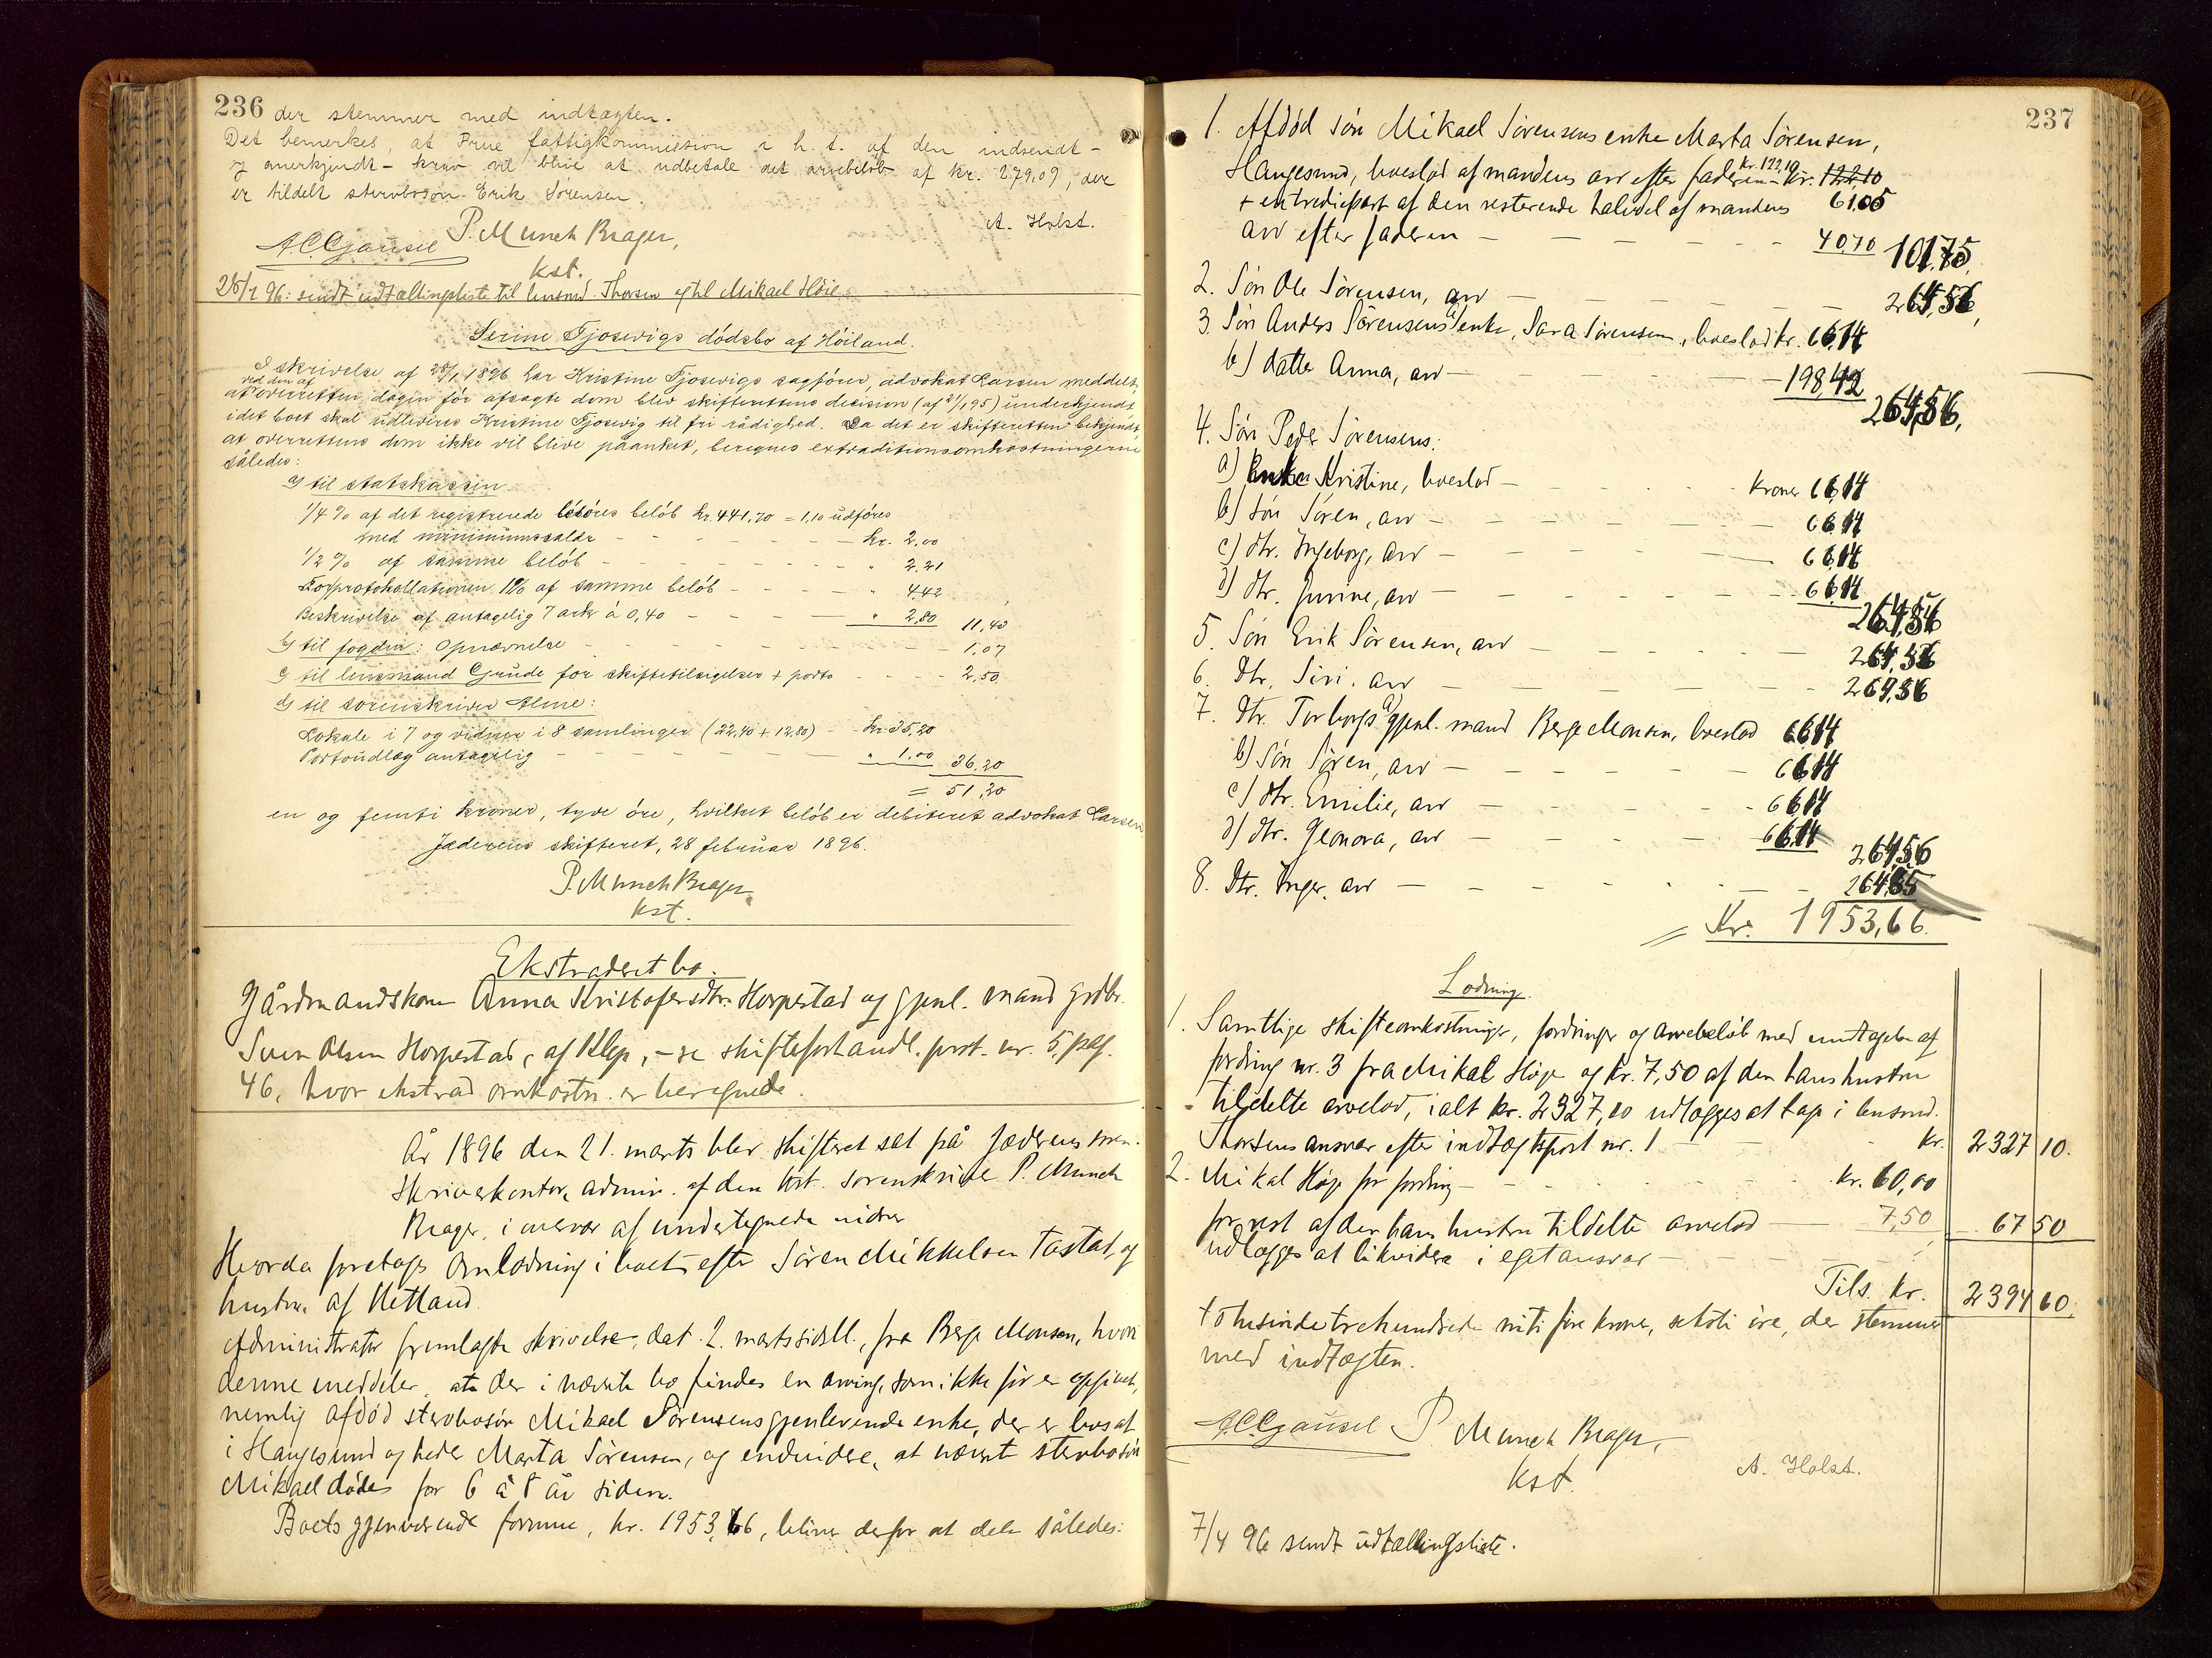 236 der stemmer med indtægten.
Det bemerkes, at Frue fattigkommission i h. t. af den indsendt -
og anerkjendt - krav vil blive at udbetale det arvebeløb af kr. 279,09, der
er tildelt stervbosøn Erik Sørensen.
A. Holst.
P. Munch Brager,
A.C. Gausel
kst.
26/2 96: sendt udtællingsliste til lensmd. Thorsen og til Mikael Höie.
Serine Tjosevigs dödsbo af Höiland.
I skrivelse af 28/1 1896 har Kristine Tjosevigs sagförer, advokat Larsen meddelt,
ved den af
at overretten dagen för afsagte dom blev skifterettens decision (af 21/1 95) underkjendt
idet boet skal udleveres Kristine Tjosevig til fri rådighed. Da det er skifteretten bekjendt,
at overrettens dom ikke vil blive påanket, beregnes extraditionsomkostningerne
således:
a) til statskassen
1/4 % af det registrerede löösres beløb kr. 441,70 = 1,10 udföres
med minimumssalær - - - - kr. 2,00
1/2 % af samme beløb - - - - " 2,21
For protokollationen 1 % af samme beløb - - - " 4,42
Beskrivelse af antagelig 7 ark à 0,40 - - - " 2,80 11,43
b) til fogden: Opnævnelse - - - - 1,07
c) til lensmand Grude for skiftetilsigelser + porto - - - 2,50
d) til sorenskriver Alme:
Lokale i 7 og vidner i 8 samlinger (22,40 + 12,80) - kr. 35,20
Portoudlæg antagelig - - - - " 1,00 36,20
= 51,20
en og femti kroner, tyve öre, hvilket beløb er debiteret advokat Larsen
Jæderens skifteret, 28 februar 1896.
P. Munch Brager
kst.
Ekstraderet bo.
Gårdmandskone Anna Kristofersdtr. Horpestad og gjenl. mand grdbr.
Sven Olsen Horpestad, af Klep, - se skifteforhandl. prot. nr. 5, pag.
46, hvor ekstrad. omkostn. er beregnede.
År 1896 den 21. marts blev skifteret sat på Jæderens soren-
skriverkontor, admin. af den kst. sorenskriver P. Munch
Brager, i overvær af undertegnede vidner
Hvorda foretoges omlodning i boet efter Søren Mikkelsen Tastad, og
hustru af Hetland.
Administrator fremlagde skrivelse, dat. 2. marts sidstl., fra Berge Monsen, hvori
denne meddeler, at der i nævnte bo findes en arving, som ikke för er opgivet,
nemlig afdöd stervbosön Mikael Sørensens gjenlevende enke, der er bosat
i Haugesund og heder Marta Sørensen, og endvidere, at nævnt stervbosön
Mikael döde for 6 à 8 år siden.
Boets gjenværende formue, kr. 1953,66, bliver derfor at dele således:
237
1. Afdöd sön Mikael Sørensens enke Marta Sørensen,
Haugesund, boeslod af mandens arv efter faderen - kr. 122,10 kr. 122,10
61,05
+ en trediepart af den resterende halvdel af mandens
arv efter faderen - - - - - 40,70 101,75
2. Sön Ole Sørensen, arv - - - - - 264,56
3. Sön Anders Sørensens a) enke, Sara Sørensen, boeslod kr. 66,14
b) datter Anna, arv - - - - 198,42
264,56,
4. Sön Peder Sørensens:
a) Enke Kristine, boeslod - - - kroner 66,14
b) sön Sören, arv - - - - 66,14
c) dtr. Ingeborg, arv - - - - 66,14
d) dtr. Jurine, arv - - - - 66,14
264,56
5. Sön Erik Sørensen, arv - - - - 264,56
6. Dtr. Siri, arv - - - - 264,56
7. Dtr. Torborgs a) gjenl. mand Berge Monsen, boeslod 66,14
b) Sön Sören, arv - - - - 66,14
c) dtr. Emilie, arv - - - - 66,14
d) dtr. Gleonora, arv - - - - 66,14
264,56
8. Dtr. Inger, arv - - - - 264,55
= Kr. 1953,66.
Lodning.
1. Samtlige skifteomkostninger, fordringer og arvebeløb med undtagelse af
fordring nr. 3 fra Mikal Höje og kr. 7,50 af den hans hustru
tildelte arvelod, ialt kr. 2327,10 udlægges at tage i lensmd.
Thorsens ansvar efter indtægtspost nr. 1 - - - kr. 2327 10.
2. Mikal Höje for fordring - - - - kr. 60,00
for rest af den hans hustru tildelte arvelod - 7,50 67 50
udlægges at likvidere i eget ansvar - - -
Tils. kr. 2394 60.
totusindetrehundrede nitifire kroner, seksti öre, der stemmer
med indtægten.
A.C. Gausel P. Munch Brager,
kst. A. Holst.
7/4 96 sendt udtællingsliste.